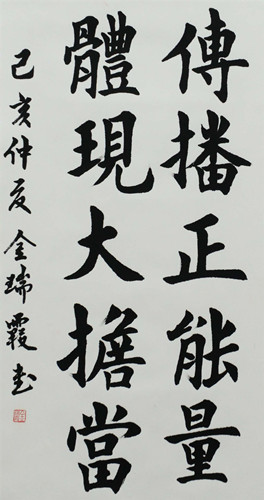 傳播正能量
體現大擔當
己亥仲夏金瑞霞书